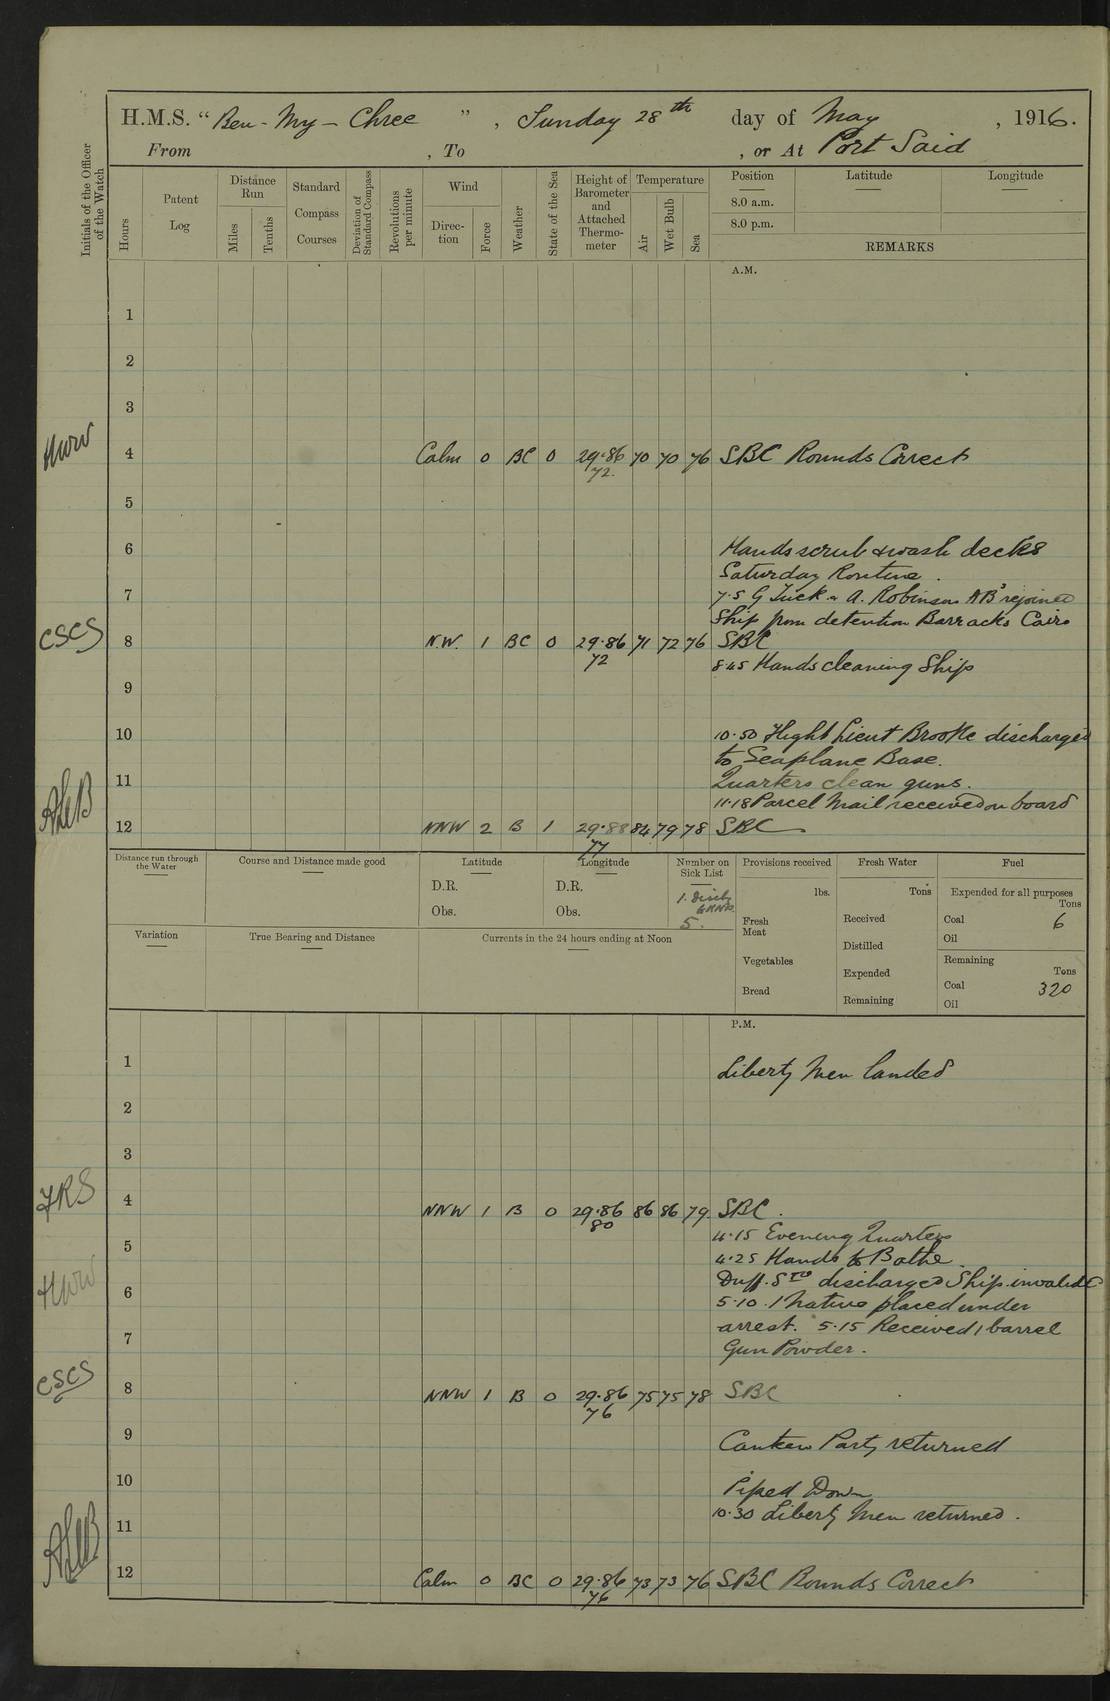 H.M.S. “ Ben - My - Chree ” , Sunday 28th day of May , 1916.
From , To , or At Port Said
Initials of the Officer of the Watch
Hours
Patent Log
Distance Run
Miles
Tenths
Standard Compass Courses
Deviation of Standard Compass
Revolutions per minute
Wind
Direction
Force
Weather
State of the Sea
Height of Barometer and Attached Thermometer
Temperature
Air
Wet Bulb
Sea
Position Latitude Longitude
8.0 a.m.
8.0 p.m.
REMARKS
A.M.
1
2
3
HWW 4 Calm 0 BC 0 29.86 70 70 76 SBC Rounds Correct
72
5
6 Hands scrub & wash decks
Saturday Routine.
7 7.5 G Tuck & A. Robinson ABs rejoined
Ship from detention Barracks Cairo
CSCS 8 N.W. 1 BC 0 29.86 71 72 76 SBC
72 8.45 Hands cleaning Ship
9
10 10.50 Flight Lieut Brooke discharged
to Seaplane Base.
11 Quarters clean guns.
11.18 Parcel Mail received on board
12 NNW 2 B 1 29.88 84 79 78 SBC
77
Distance run through the Water
Course and Distance made good
Latitude
D.R.
Obs.
Longitude
D.R.
Obs.
Number on Sick List
1. Disch
5.
Provisions received
lbs.
Fresh Meat
Vegetables
Bread
Fresh Water
Tons
Received
Distilled
Expended
Remaining
Fuel
Expended for all purposes
Tons
Coal 6
Oil
Remaining
Tons
Coal 320
Oil
Variation
True Bearing and Distance
Currents in the 24 hours ending at Noon
P.M.
1 Liberty Men landed
2
3
FRS 4 NNW 1 B 0 29.86 86 86 79 SBC.
80 4.15 Evening Quarters
5 4.25 Hands to Bathe.
HWW 6 Duff. Sto discharged Ship invalided
5.10 . 1 Native placed under
7 arrest. 5.15 Received 1 barrel
Gun Powder.
CSCS 8 NNW 1 B 0 29.86 75 75 78 SBC
76
9 Canteen Party returned
10 Piped Down
10.30 Liberty Men returned.
11
12 Calm 0 BC 0 29.86 73 73 76 SBC Rounds Correct
76